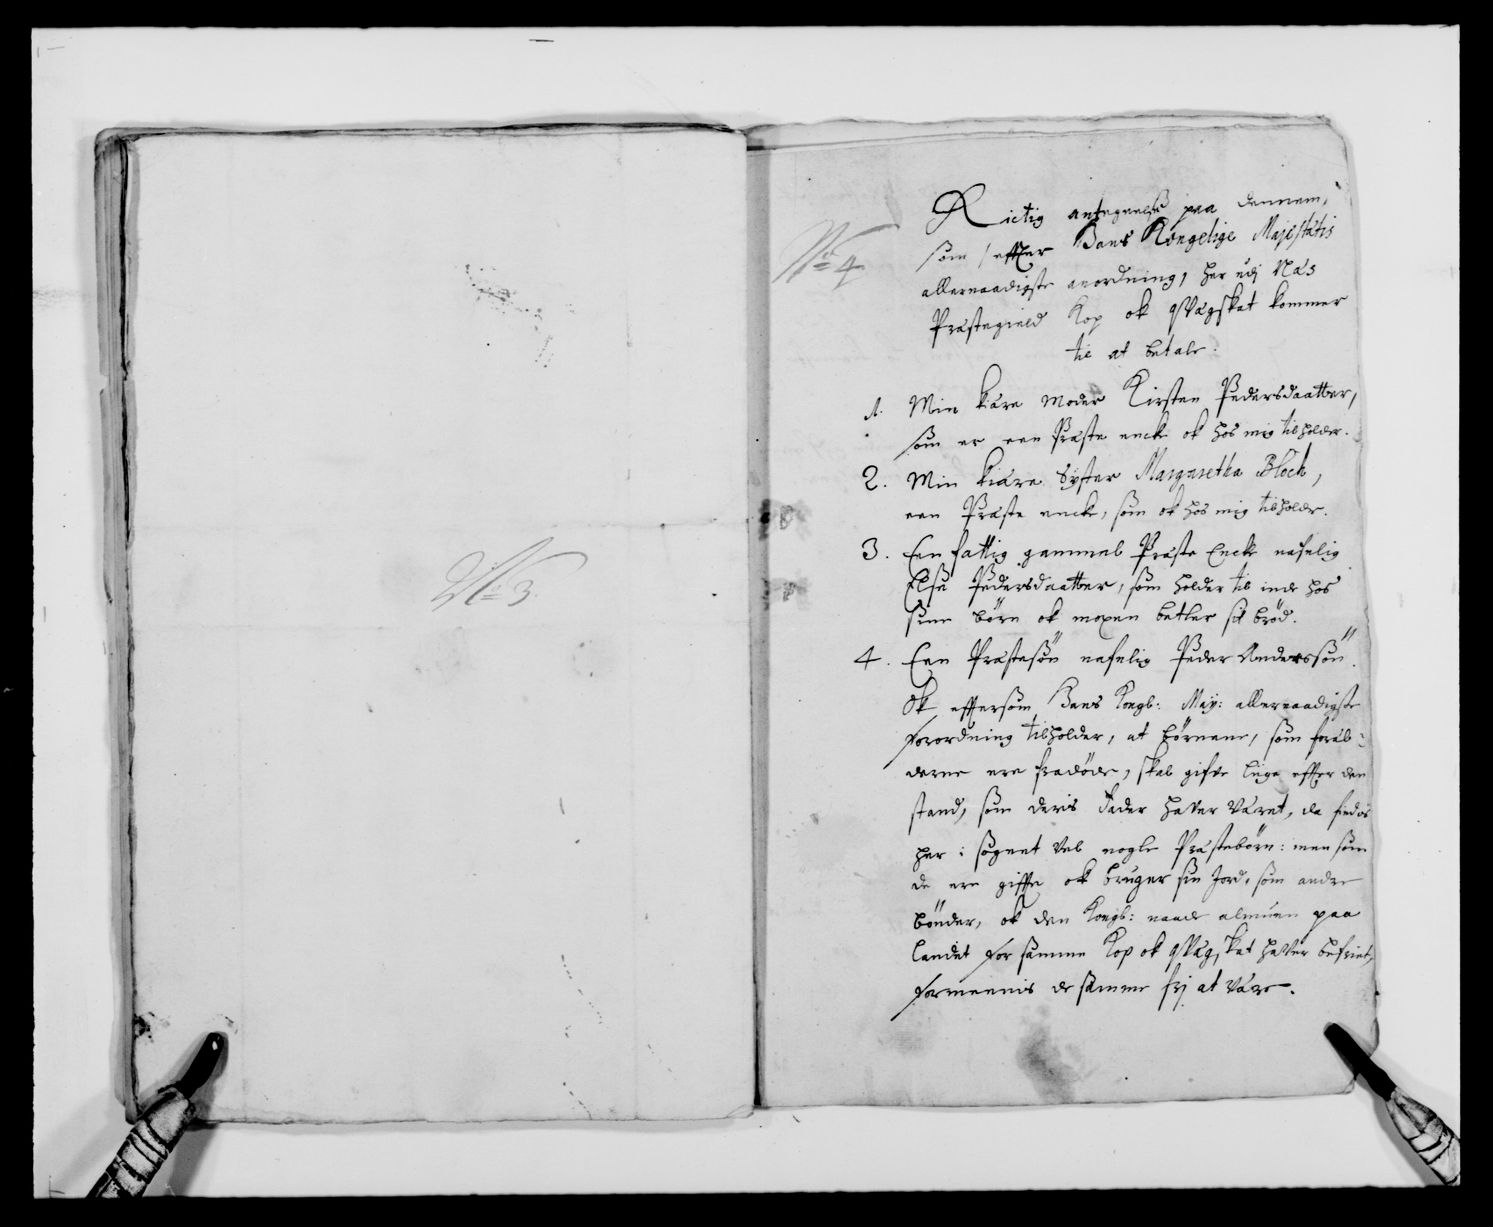 No 3.
No 4
Rictig antegnelse paa dennem,
som / effter Hans Kongelige Majestatis
allernaadigste anordning, her udj Näs
Prästegield Kop ok qvägskat kommer
til at betale.
1. Min kiäre Moder Kirsten Pedersdaatter,
som er een Präste encke ok hos mig tilholder.
2. Min kiäre Syster Margaretha Block,
een Präste encke, som ok hos mig tilholder.
3. Een fattig gammel Präste Encke nafnlig
Else Pedersdaatter, som holder til inde hos
sine börn ok moxen betler sit bröd.
4. Een Prästesön nafnlig Peder Anderssön.
Ok efftersom Hans Kongl: May: allernaadigste
forordning tilholder, at börnene, som foräl-
derne ere fradöde, skal gifve liige effter den
stand, som deris Fader haver väret, da findis
her i sognet vel nogle Prästebörn: men som
de ere giffte ok bruger sin Jord, som andre
bönder, ok den Kongl: naade almuen paa
landet for samme Kop ok qvägskat haver befriet,
formeenis de samme frj at väre.